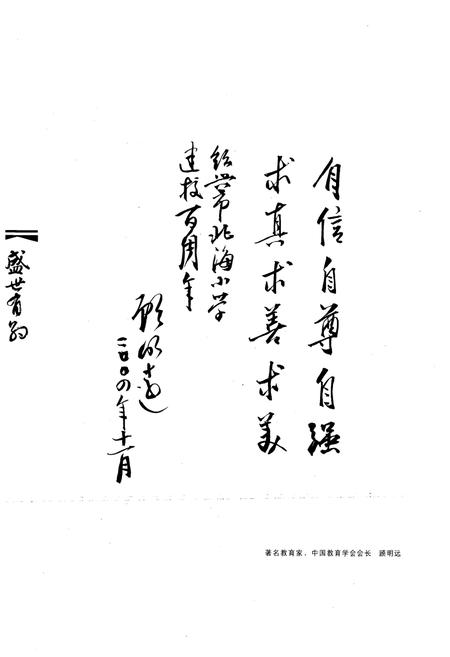 自信自尊自强
求真求善求美
绍兴市北海小学
建校百周年
顾明远
二〇〇四年十一月
盛世有
著名教育家、中国教育学会会长 顾明远